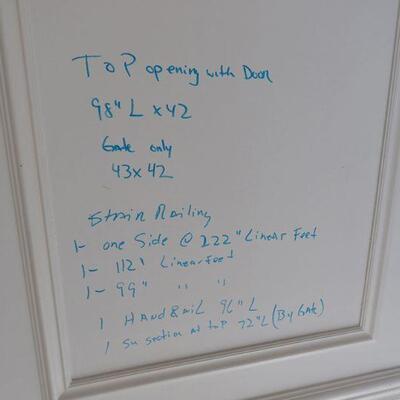 ToP opening with Door
98" L x 42
Gate only
43 x 42
Strain Railing
1- one Side @ 222" Linear Feet
1- 112' Linear Feet
1- 99" " "
1 HandRail 96" L
1 section at top 72" L (By Gate)